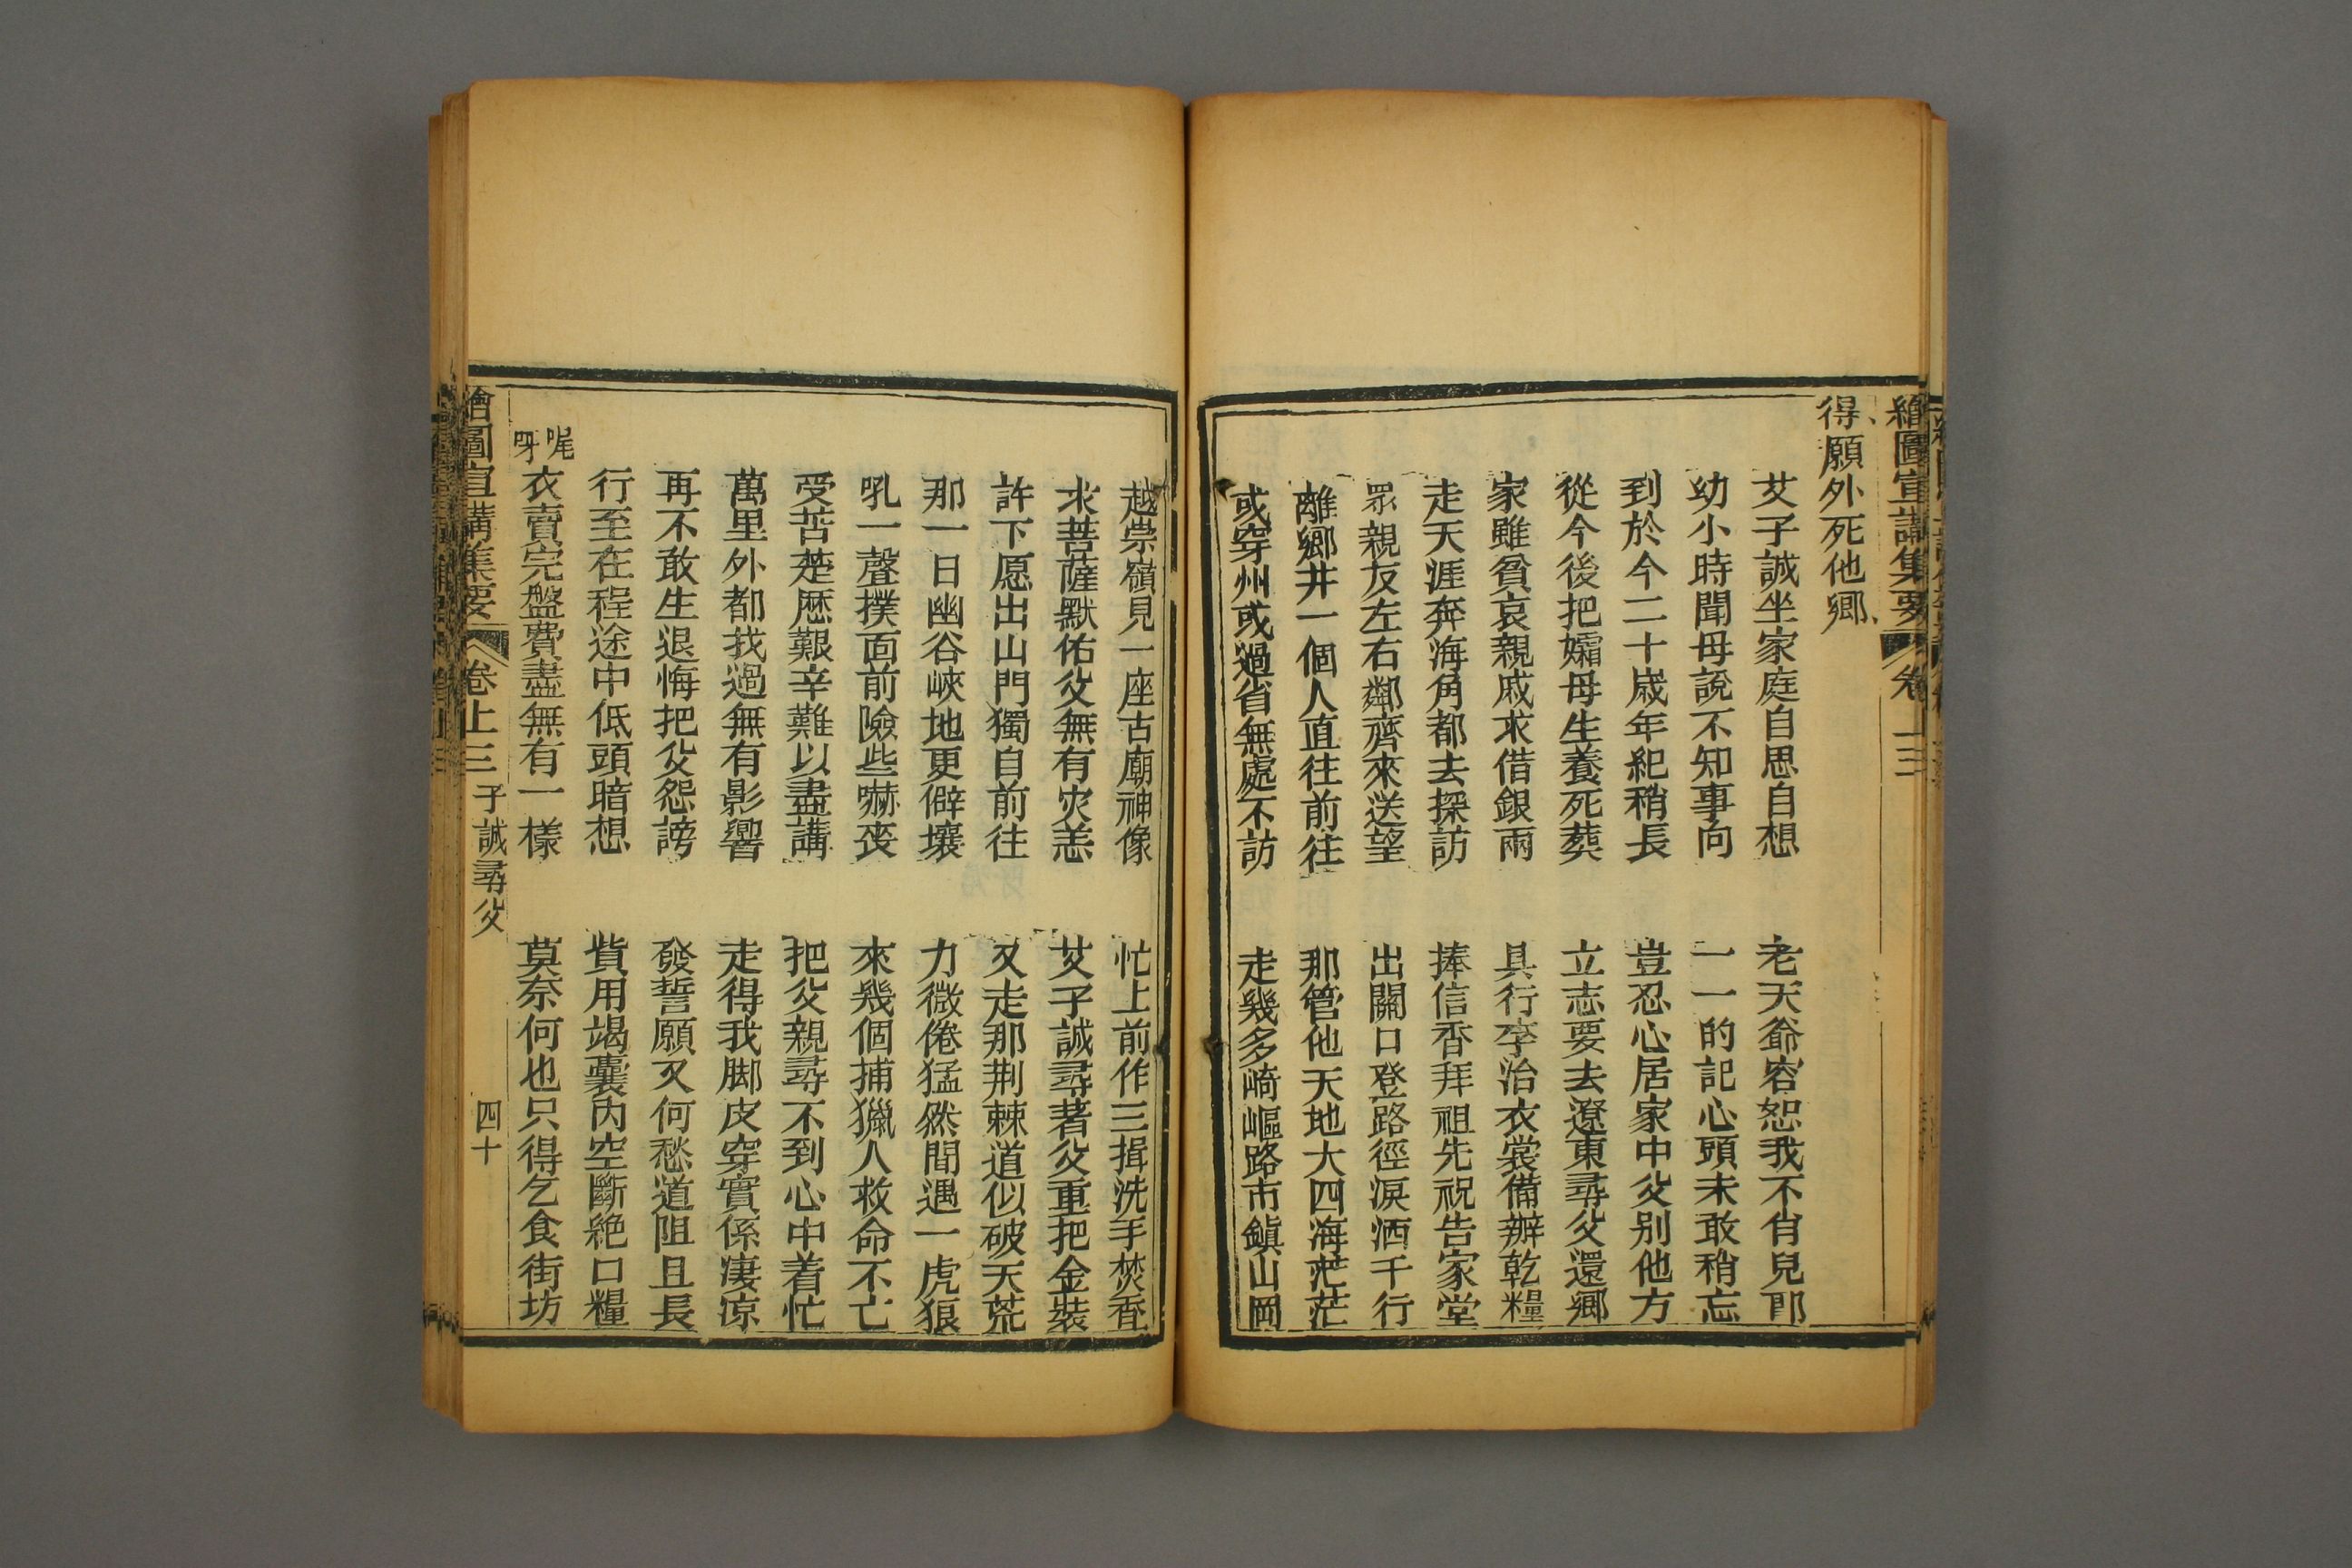 繪圖宣講集要 卷十三
得願外死他鄉
艾子誠坐家庭自思自想 老天爺容恕我不肖兒郎
幼小時聞母說不知事向 一一的記心頭未敢稍忘
到於今二十歲年紀稍長 豈忍心居家中父别他方
從今後把孀母生養死葬 立志要去遼東尋父還鄉
家雖貧哀親戚求借銀兩 具行李治衣裳備辦乾糧
走天涯奔海角都去探訪 捧信香拜祖先祝告家堂
眾親友左右鄰齊來送望 出關口登路徑淚洒千行
離鄉井一個人直往前往 那管他天地大四海茫茫
或穿州或過省無處不訪 走幾多崎嶇路市鎭山岡
越崇嶺見一座古廟神像 忙上前作三揖洗手焚香
求菩薩默佑父無有灾恙 艾子誠尋著父重把金裝
許下愿出山門獨自前往 又走那荆棘道似破天荒
那一日幽谷峽地更僻壤 力微倦猛然間遇一虎狼
吼一聲撲面前險些嚇喪 來幾個捕獵人救命不亡
受苦楚歷艱辛難以盡講 把父親尋不到心中着忙
萬里外都找過無有影響 走得我脚皮穿實係淒凉
再不敢生退悔把父怨謗 發誓願又何愁道阻且長
行至在程途中低頭暗想 貲用竭囊內空斷絶口糧
呢呀衣賣完盤費盡無有一樣 莫奈何也只得乞食街坊
繪圖宣講集要 卷十三 子誠尋父 四十